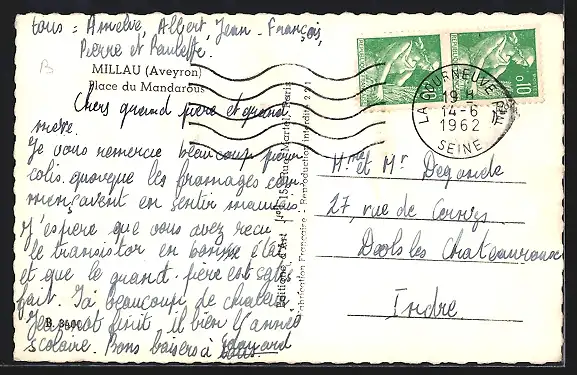 tous = Amélie, Albert, Jean-François,
Pierre et Paulette.
B
MILLAU (Aveyron)
Place du Mandarous
Chers grand père et grand
mère.
Je vous remercie beaucoup pour
colis quoique les fromages com
mençaient en sentir mauvais
J'espère que vous avez reçu
le transistor en bonne état
et que le grand-père est satis
fait. J'ai beaucoup de chaleur
finit il bien l'année
scolaire. Bons baisers à tous
B 3600
Editions d'Art
Rue Martel, Paris
Fabrication Française - Reproduction Interdite
LA COURNEUVE
19 H
14-6
1962
SEINE
Mme et Mr Degande
27, rue de
Déols les Chateauroux
Indre.